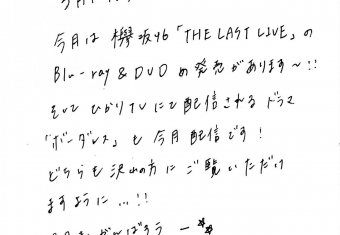 今月は欅坂46「THE LAST LIVE」の
Blu-ray & DVDの発売があります〜!!
そして ひかりTVにて配信される ドラマ
「ボーダレス」も 今月 配信です!
どちらも沢山の方に ご覧いただけ
ますように…!!
がんばろうー